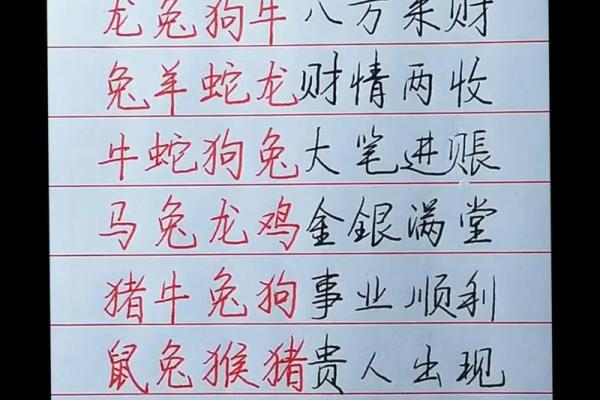 龙兔狗牛八方来财
兔羊蛇龙财情两收
牛蛇狗兔大笔进賬
马兔龙鸡金银满堂
猪牛兔狗事业顺利
鼠兔猴猪贵人出现